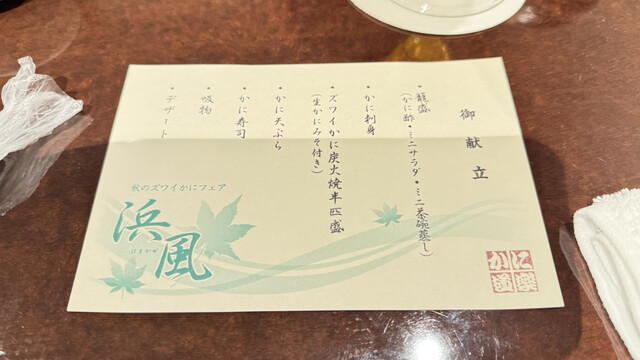 御献立
・籠盛
(かに酢・ミニサラダ・ミニ茶碗蒸し)
・かに刺身
・ズワイかに炭火焼半匹盛
(生かにみそ付き)
・かに天ぷら
・かに寿司
・吸物
・デザート
秋のズワイかにフェア
浜風
はまかぜ
かに